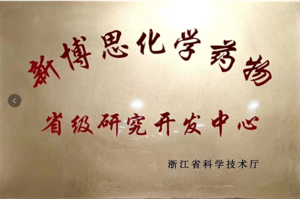 新博思化学药物
省级研究开发中心
浙江省科学技术厅